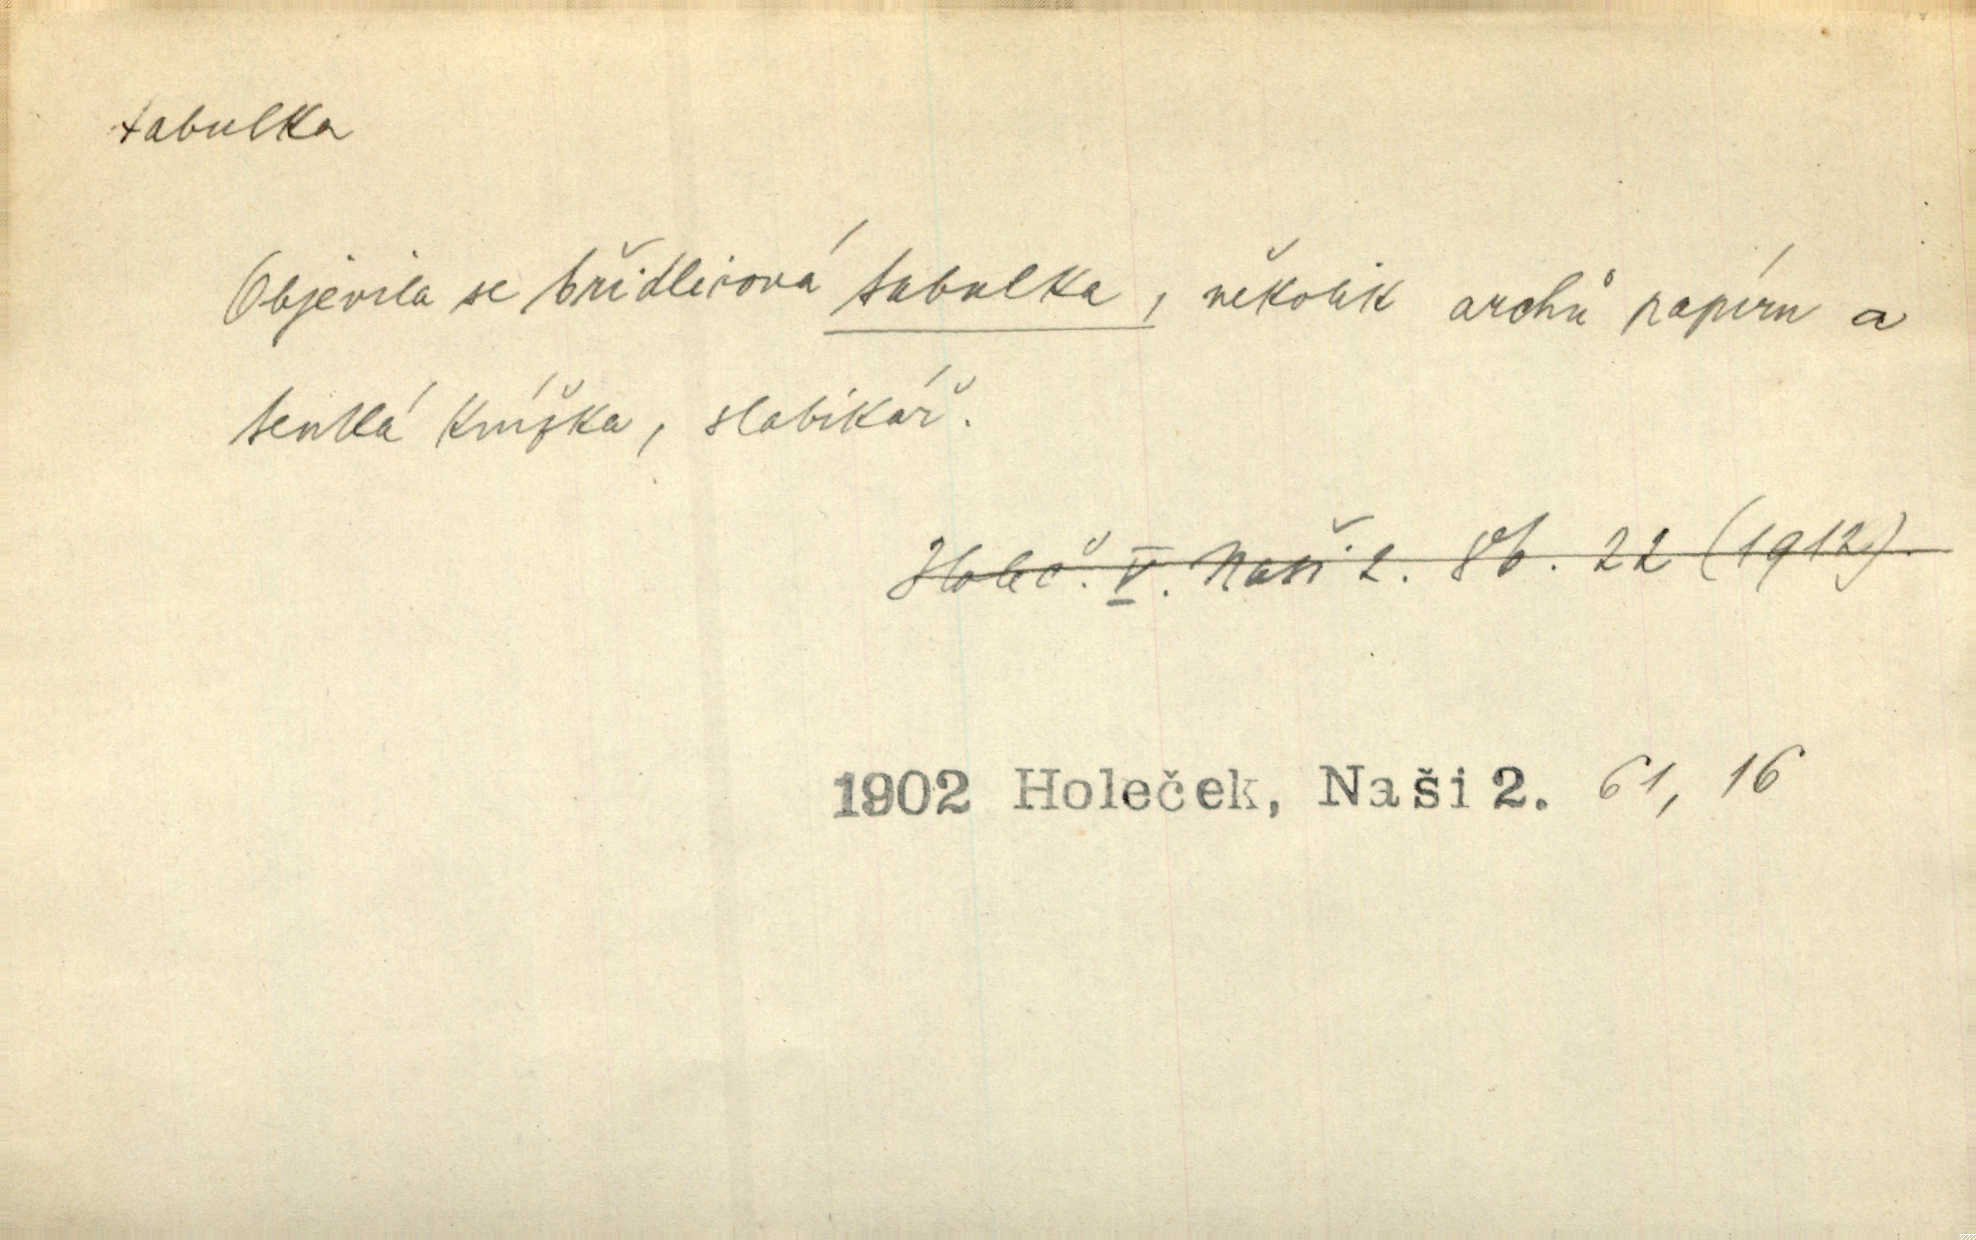 tabulka
Objevila se břidlicová tabulka, několik archů papíru a
tenká knížka, slabikář.
Holeč. V. Naši 2. 86. 22 (1912).
1902 Holeček, Naši 2. 61, 16